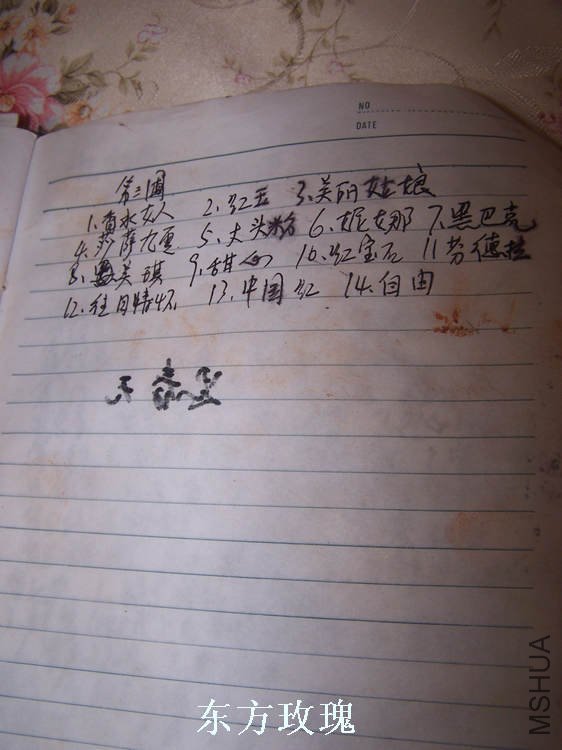 NO
DATE
第三圃
1.香水女人 2.红玉 3.美丽姑娘
4.莎萨九重 5.大头粉 6.妮娜 7.黑巴克
8. 美琪 9.甜心 10.红宝石 11.芬德拉
12.往日情怀 13.中国红 14.自由
东方玫瑰
MSHUA